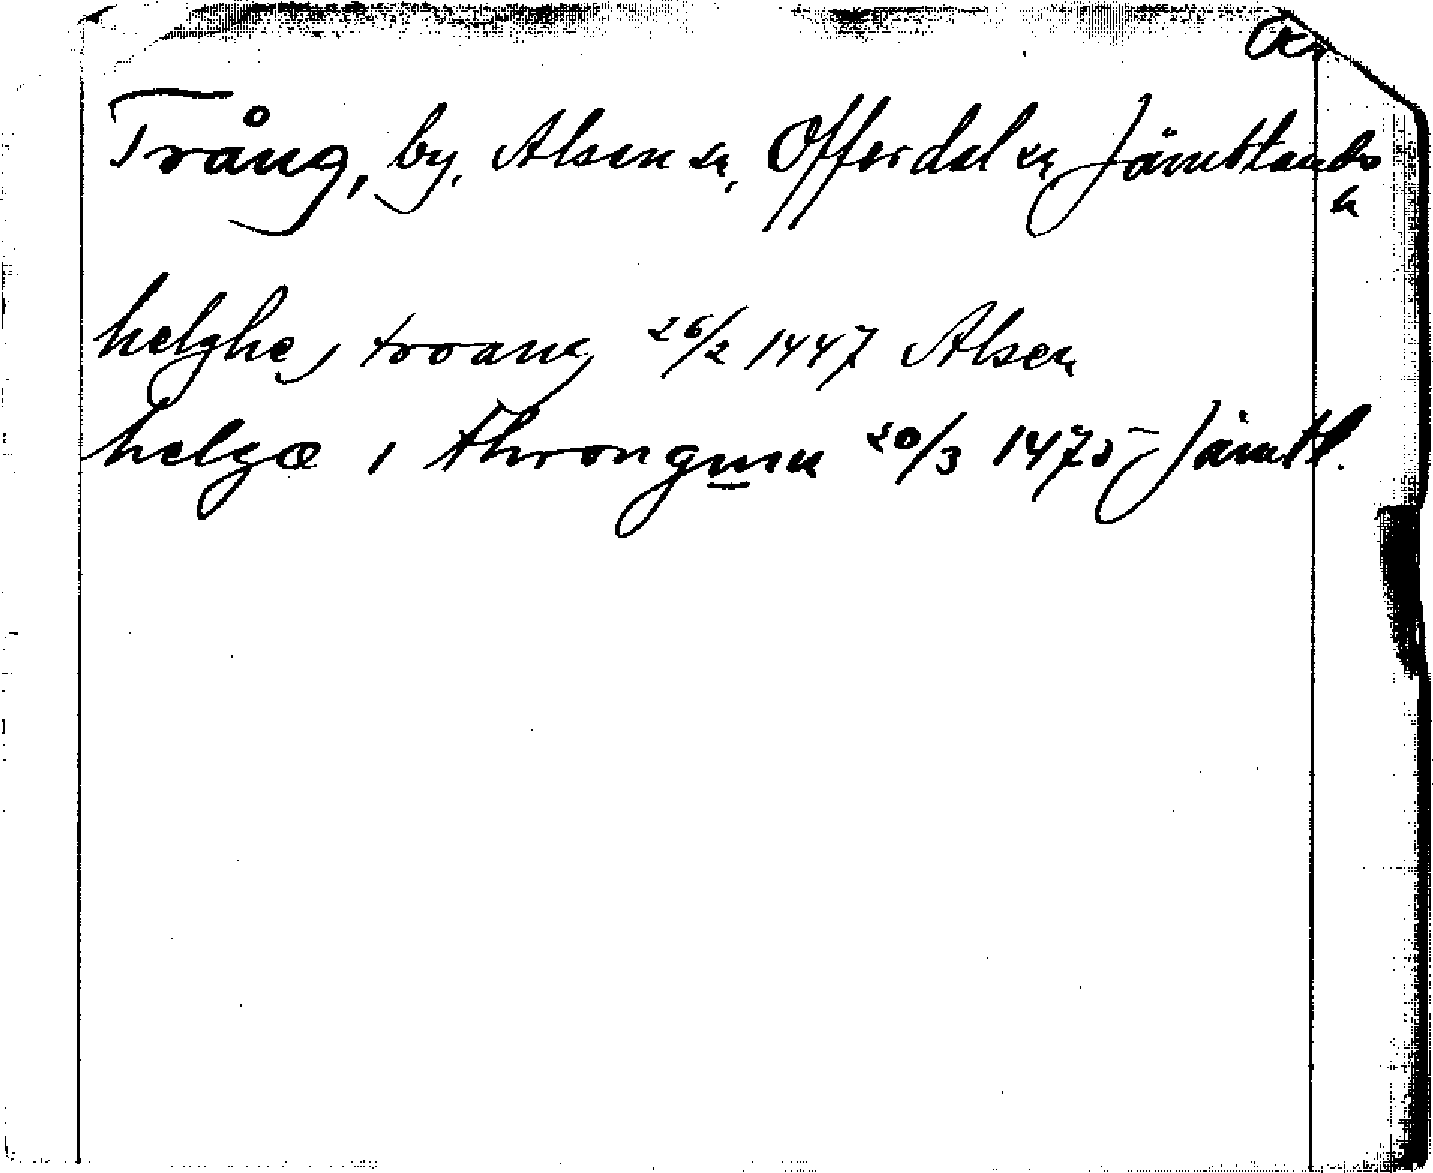 Trång, by, Alsen sn, Offerdal sn Jämtlands
helghe j troang 26/2 1447 Alsen
helgæ i throngmen 20/3 1475 Jämtl.